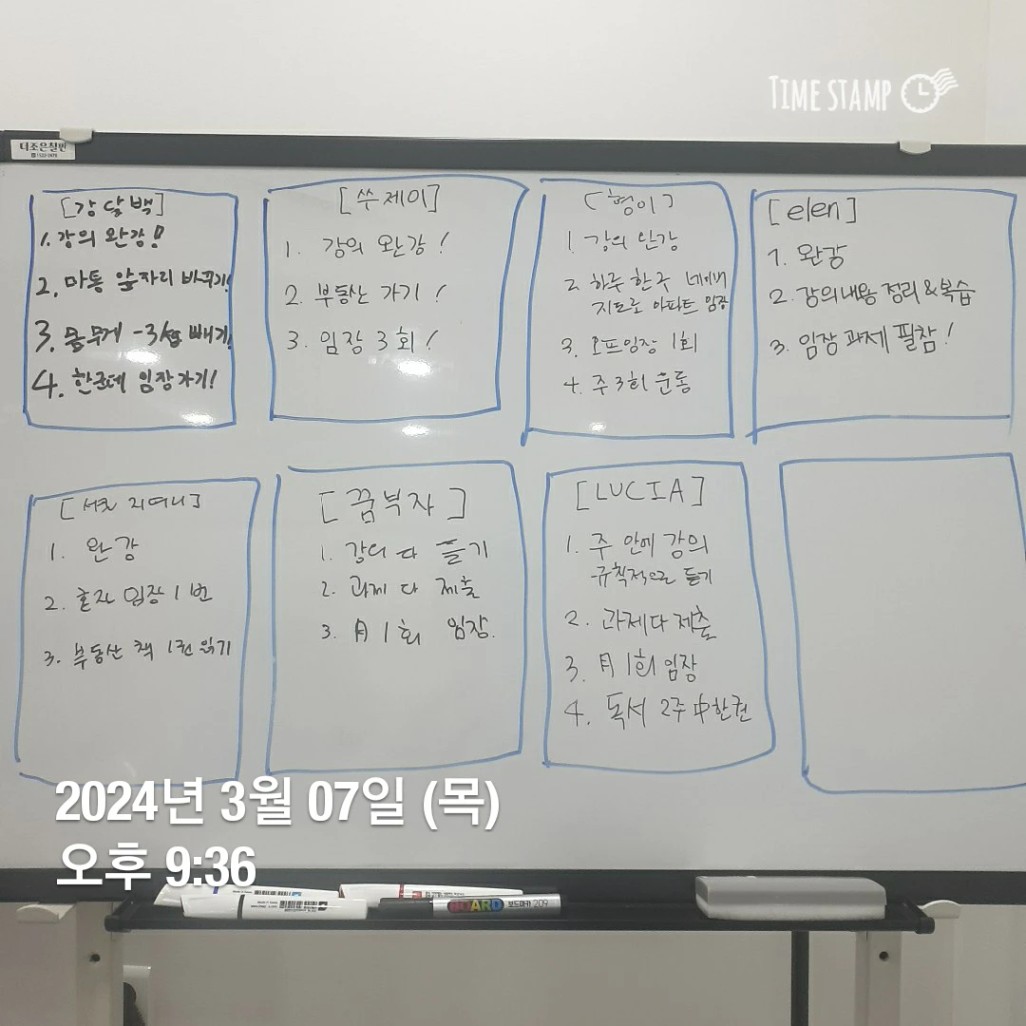 TIME STAMP
더조은칠판
[강달백]
1. 강의 완강!!
2. 마통 앞자리 바꾸기!
3. 몸무게 -3kg 빼기!
4. 한군데 임장가기!
[쑤제이]
1. 강의 완강!
2. 부동산 가기!
3. 임장 3회!
[형이]
1. 강의 완강
2. 하루 한곳 네이버
지도로 아파트 임장
3. 오프임장 1회
4. 주3회 운동
[elen]
1. 완강
2. 강의내용 정리&복습
3. 임장 과제 필참!
[서진 지여니]
1. 완강
2. 혼자 임장 1번
3. 부동산 책 1권 읽기
[꿈부자]
1. 강의 다 듣기
2. 과제 다 제출
3. 月 1회 임장.
[LUCIA]
1. 주 안에 강의
규칙적으로 듣기
2. 과제다 제출
3. 月 1회 임장
4. 독서 2주 中 한권
2024년 3월 07일 (목)
오후 9:36
BOARD 보드마카 209